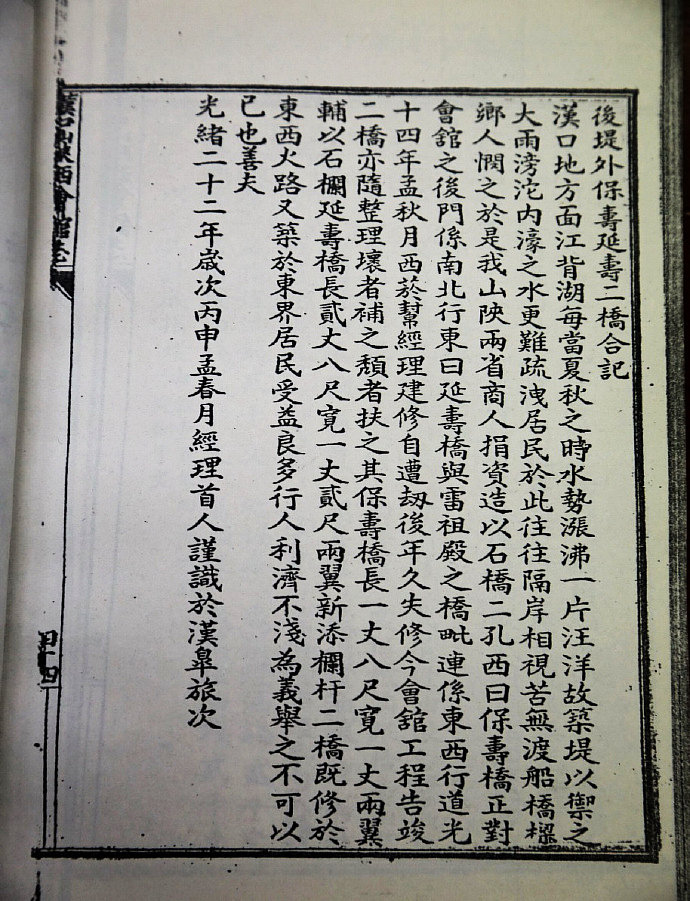 後堤外保壽延壽二橋合記
漢口地方面江背湖每當夏秋之時水勢漲沸一片汪洋故築堤以禦之
大雨滂沱內濠之水更難疏洩居民於此往往隔岸相視苦無渡船橋樑
鄉人憫之於是我山陝兩省商人捐資造以石橋二孔西曰保壽橋正對
會舘之後門係南北行東曰延壽橋與雷祖殿之橋毗連係東西行道光
十四年孟秋月西菸幫經理建修自遭刼後年久失修今會舘工程告竣
二橋亦隨整理壞者補之頹者扶之其保壽橋長一丈八尺寬一丈兩翼
輔以石欄延壽橋長貳丈八尺寬一丈貳尺兩翼新添欄杆二橋既修於
東西火路又築於東界居民受益良多行人利濟不淺為義舉之不可以
已也善夫
光緒二十二年歲次丙申孟春月經理首人謹識於漢皐旅次